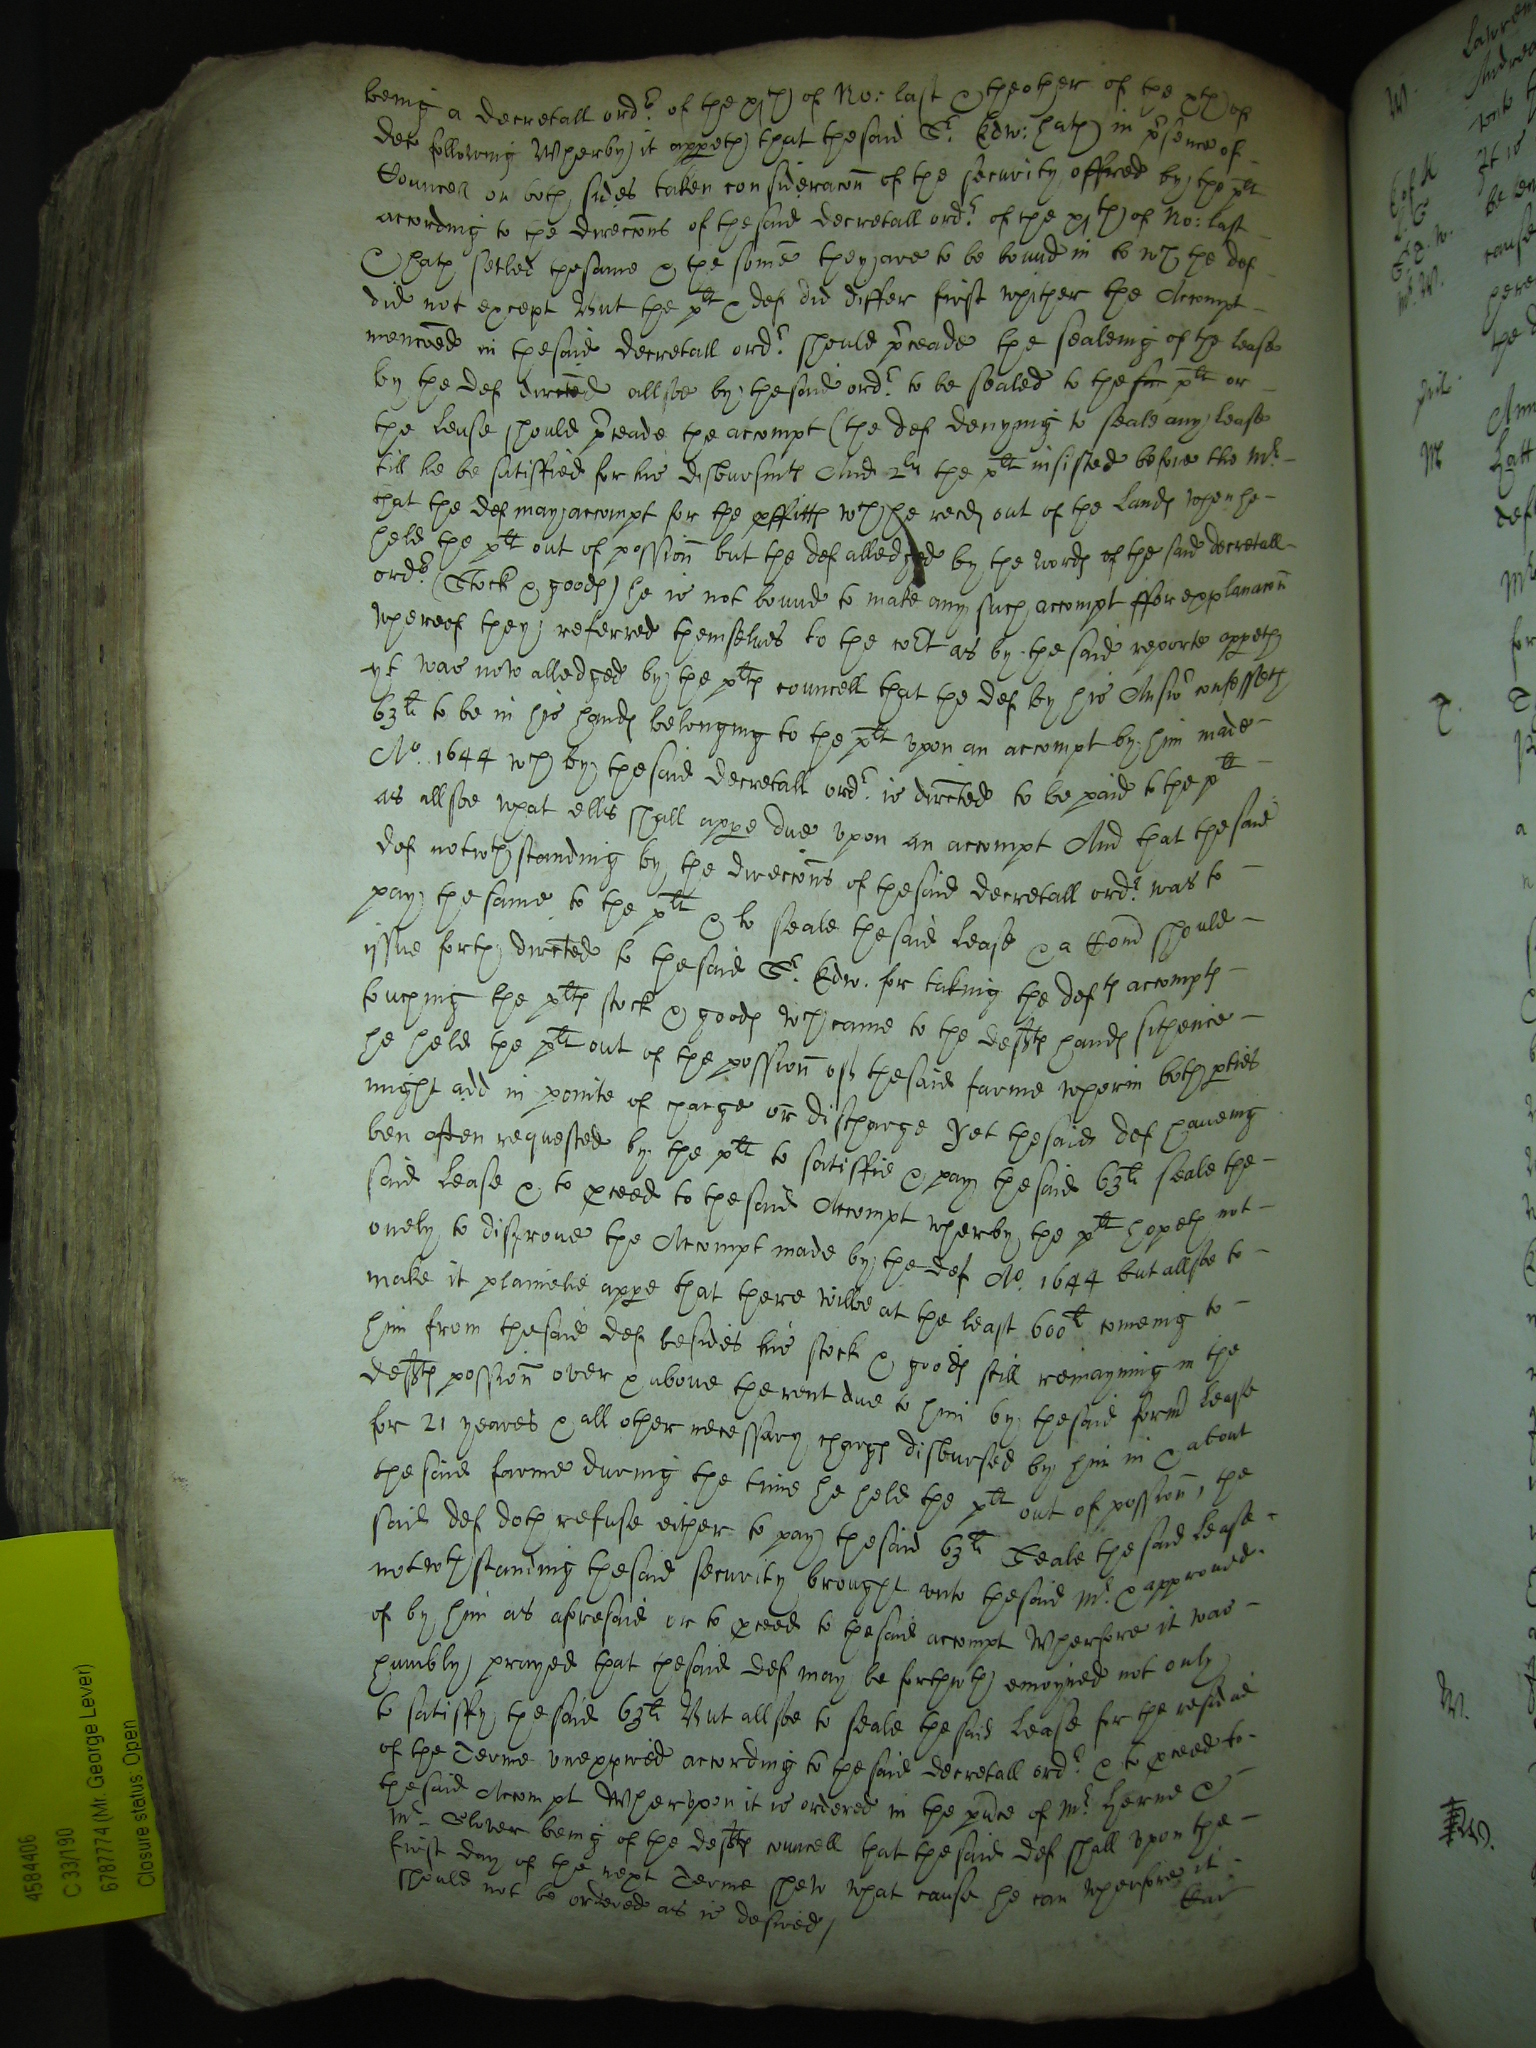 being a decretall ordr. of the xjth of No: last & the other of the xth of
Decr following Wherby it appeth that the said Sr. Edw: hath in prsence of
Councell on both sides taken consideracon of the security offred by the plt
according to the direccons of the said decretall ordr. of the xjth of No: last
& hath setled the same & the some they are to be bound in to wch the def
did not except But the plt & def did differ first whither the Accompt
mencoed in the said decretall ordr. should prceade the sealeing of the lease
by the def directed allsoe by the said ordr. to be sealed to the plt or
the lease should prceade the accompt (the def denying to seale any lease
till he be satisfied for his disbursmts And 2ly the plt insisted before the Mr.
that the def may accompt for the pffitts wch he recd out of the Lands when he
held the plt out of possion but the def alledged by the words of the said decretall
ordr. (Stock & goods) he is not bound to make any such accompt ffor explanacon
whereof they referred themselves to the cort as by the said reporte appeth
yt was now alledged by the plts councell that the def by his Answr confesseth
63li to be in his hands belonging to the plt upon an accompt by him made
Ao. 1644 wch by the said decretall ordr. is directed to be paid to the plt
as allsoe what ells shall appe due upon an accompt And that the said
def notwthstanding by the direccons of the said decretall ordr. was to
pay the same to the plt & to seale the said lease & a Com should
issue forth directed to the said Sr. Edw. for taking the defts accompts
touching the plts stock & goods wch came to the defts hands sithence
he held the plt out of the possion of the said farme wherin both pties
might add in pointe of charge or discharge Yet the said def haveing
ben often requested by the plt to satisfie & pay the said 63li seale the
said lease & to pceed to the said Accompt wherby the plt hopeth not
onely to disprove the Accompt made by the def Ao. 1644 but allsoe to
make it plainelie appe that there wilbe at the least 600li comeing to
him from the said def besides his stock & goods still remayning in the
defts possion over & above the rent due to him by the said formr lease
for 21 yeares & all other necessary chargs disbursed by him in & about
the said farme during the time he held the plt out of possion, the
said def doth refuse either to pay the said 63li Seale the said lease
notwthstanding the said security brought unto the said Mr. & approved
of by him as aforesaid or to pceed to the said accompt Wherfore it was
humbly prayed that the said def may be forthwth enioyned not only
to satisfy the said 63li But allsoe to seale the said lease for the
of the Terme unexpired according to the said decretall ordr. & to pceed to
the said Accompt Wherupon it is ordered in the pnce of Mr. Herne &
Mr. Glover being of the defts councell that the said def shall upon the
first day of the next Terme shew what cause he can wherfore it
should not be ordered as is desired/
4584406
C 33/190
6787774 (Mr. George Lever)
Closure status: Open